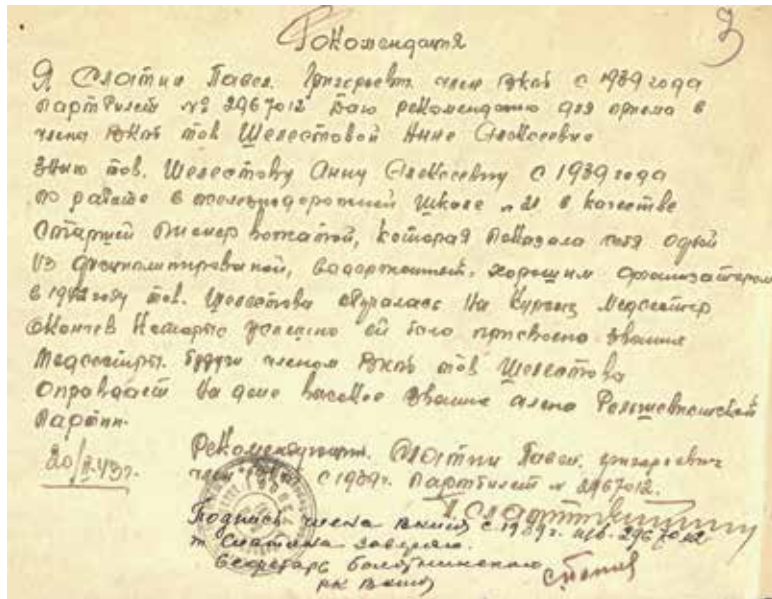 Рекомендация
Я Слатин Павел. Григорьевич член ВКПб с 1939 года
партбилет № 2967012 даю рекомендацию для приема в
члена ВКПб тов Шелестовой Анне Алексеевне
Знаю тов. Шелестову Анну Алексеевну с 1939 года
по работе в железнодорожной школе в качестве
Старшей пионер вожатой, которая показала себя одной
из хорошим организатором
в 1942 году тов. Шелестова обучалась на курсах Медсестер
успешно ей было присвоено звание
Медсестры. Будучи членом ВКПб тов Шелестова
оправдает на деле высокое звание члена Большевистской
Партии.
20/II-43г.
Рекомендующий. Слатин Павел. Григорьевич
член с 1939г. Партбилет № 2967012.
Подпись члена с 1939г. 2967012
т Слатина заверяю.
Секретарь
РК